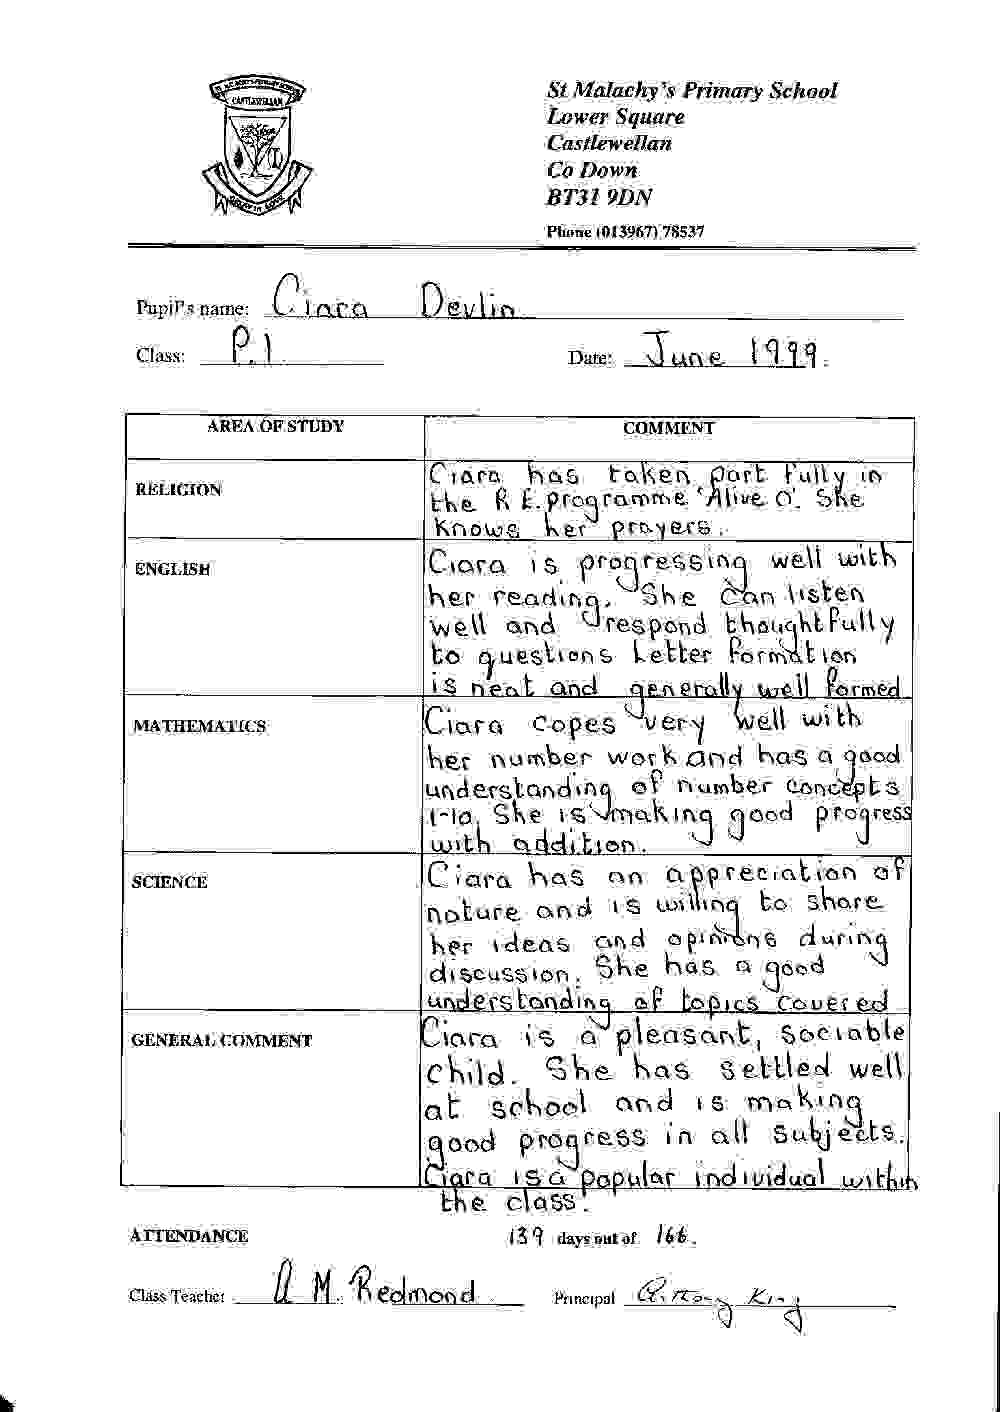 CASTLEWELLAN
St Malachy's Primary School
Lower Square
Castlewellan
Co Down
BT31 9DN
Phone (013967) 78537
Pupil's name: Ciara Devlin
Class: P.1 Date: June 1999.
AREA OF STUDY COMMENT
RELIGION
Ciara has taken part fully in
the R E. programme 'Alive O'. She
knows her prayers.
ENGLISH
Ciara is progressing well with
her reading. She can listen
well and respond thoughtfully
to questions Letter formation
is neat and generally well formed
MATHEMATICS
Ciara copes very well with
her number work and has a good
understanding of number concepts
1-10. She is making good progress
with addition.
SCIENCE
Ciara has an appreciation of
nature and is willing to share
her ideas and opinions during
discussion. She has a good
understanding of topics covered
GENERAL COMMENT
Ciara is a pleasant, sociable
child. She has settled well
at school and is making
good progress in all subjects.
Ciara is a popular individual within
the class.
ATTENDANCE 139 days out of 166.
Class Teacher A M. Redmond Principal Anthony King